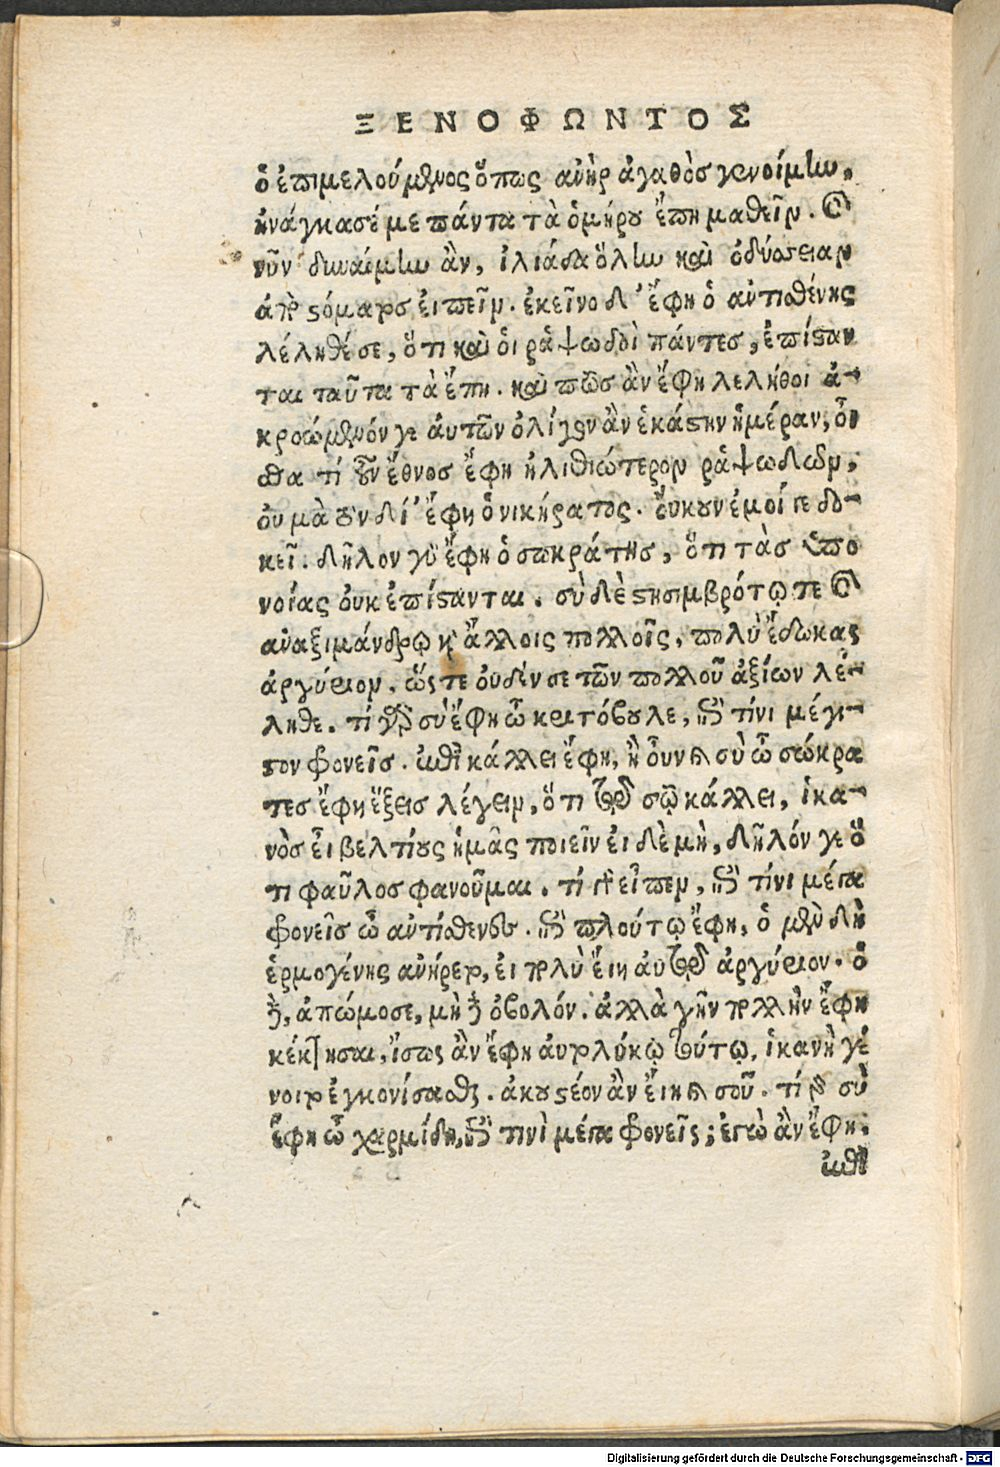 ΞΕΝΟΦΩΝΤΟΣ
ὁ ἐπιμελούμενος ὅπως ἀνὴρ ἀγαθὸς γενοίμην,
ἠνάγκασέ με πάντα τὰ ὁμήρου ἔπη μαθεῖν. καὶ
νῦν δυναίμην ἂν, ἰλιάδα ὅλην καὶ ὀδύσειαν
ἀπὸ στόματος εἰπεῖν. ἐκεῖνο δ' ἔφη ὁ ἀντισθένης
λέληθέ σε, ὅτι καὶ οἱ ῥαψωδοὶ πάντες, ἐπίσταν
ται ταῦτα τὰ ἔπη. καὶ πῶς ἂν ἔφη λελήθοι ἀ-
κροώμενόν γε αὐτῶν ὀλίγον ἂν ἑκάστην ἡμέραν, οἶ
σθα τί οὖν ἔθνος ἔφη ἠλιθιώτερον ῥαψωδῶν,
οὐ μὰ τὸν δί' ἔφη ὁ νικήρατος. οὔκουν ἐμοί γε δο-
κεῖ. δῆλον γὰρ ἔφη ὁ σωκράτης, ὅτι τὰς ὑπο
νοίας οὐκ ἐπίστανται. σὺ δὲ στησιμβρότῳ τε καὶ
ἀναξιμάνδρῳ καὶ ἄλλοις πολλοῖς, πολὺ ἔδωκας
ἀργύριον, ὥστε οὐδέν σε τῶν πολλοῦ ἀξίων λέ-
ληθε. τί γὰρ σὺ ἔφη ὦ κριτόβουλε, ἐπὶ τίνι μέγι-
στον φρονεῖς. ἐπὶ κάλλει ἔφη, ἦ οὖν καὶ σὺ ὦ σώκρα
τες ἔφη ἕξεις λέγειν, ὅτι τῷ σῷ κάλλει, ἱκα-
νὸς εἶ βελτίους ἡμᾶς ποιεῖν εἰ δὲ μὴ, δῆλόν γε ὅ
τι φαῦλος φανοῦμαι. τί γὰρ εἶπεν, ἐπὶ τίνι μέγα
φρονεῖς ὦ ἀντίσθενες. ἐπὶ πλούτῳ ἔφη, ὁ μὲν δὴ
ἑρμογένης ἀνήρετο, εἰ πολὺ εἴη αὐτῷ ἀργύριον. ὁ
δὲ, ἀπώμοσε, μηδὲ ὀβολόν. ἀλλὰ γῆν πολλὴν ἔφη
κέκτησαι, ἴσως ἂν ἔφη αὐτολύκῳ τούτῳ, ἱκανὴ γέ
νοιτο ἐγκονίσασθαι. ἀκουστέον ἂν εἴη καὶ σοῦ. τί δὲ σὺ
ἔφη ὦ χαρμίδη, ἐπὶ τίνι μέγα φρονεῖς; ἐγὼ ἂν ἔφη.
ἐπὶ
Digitalisierung gefördert durch die Deutsche Forschungsgemeinschaft - DFG